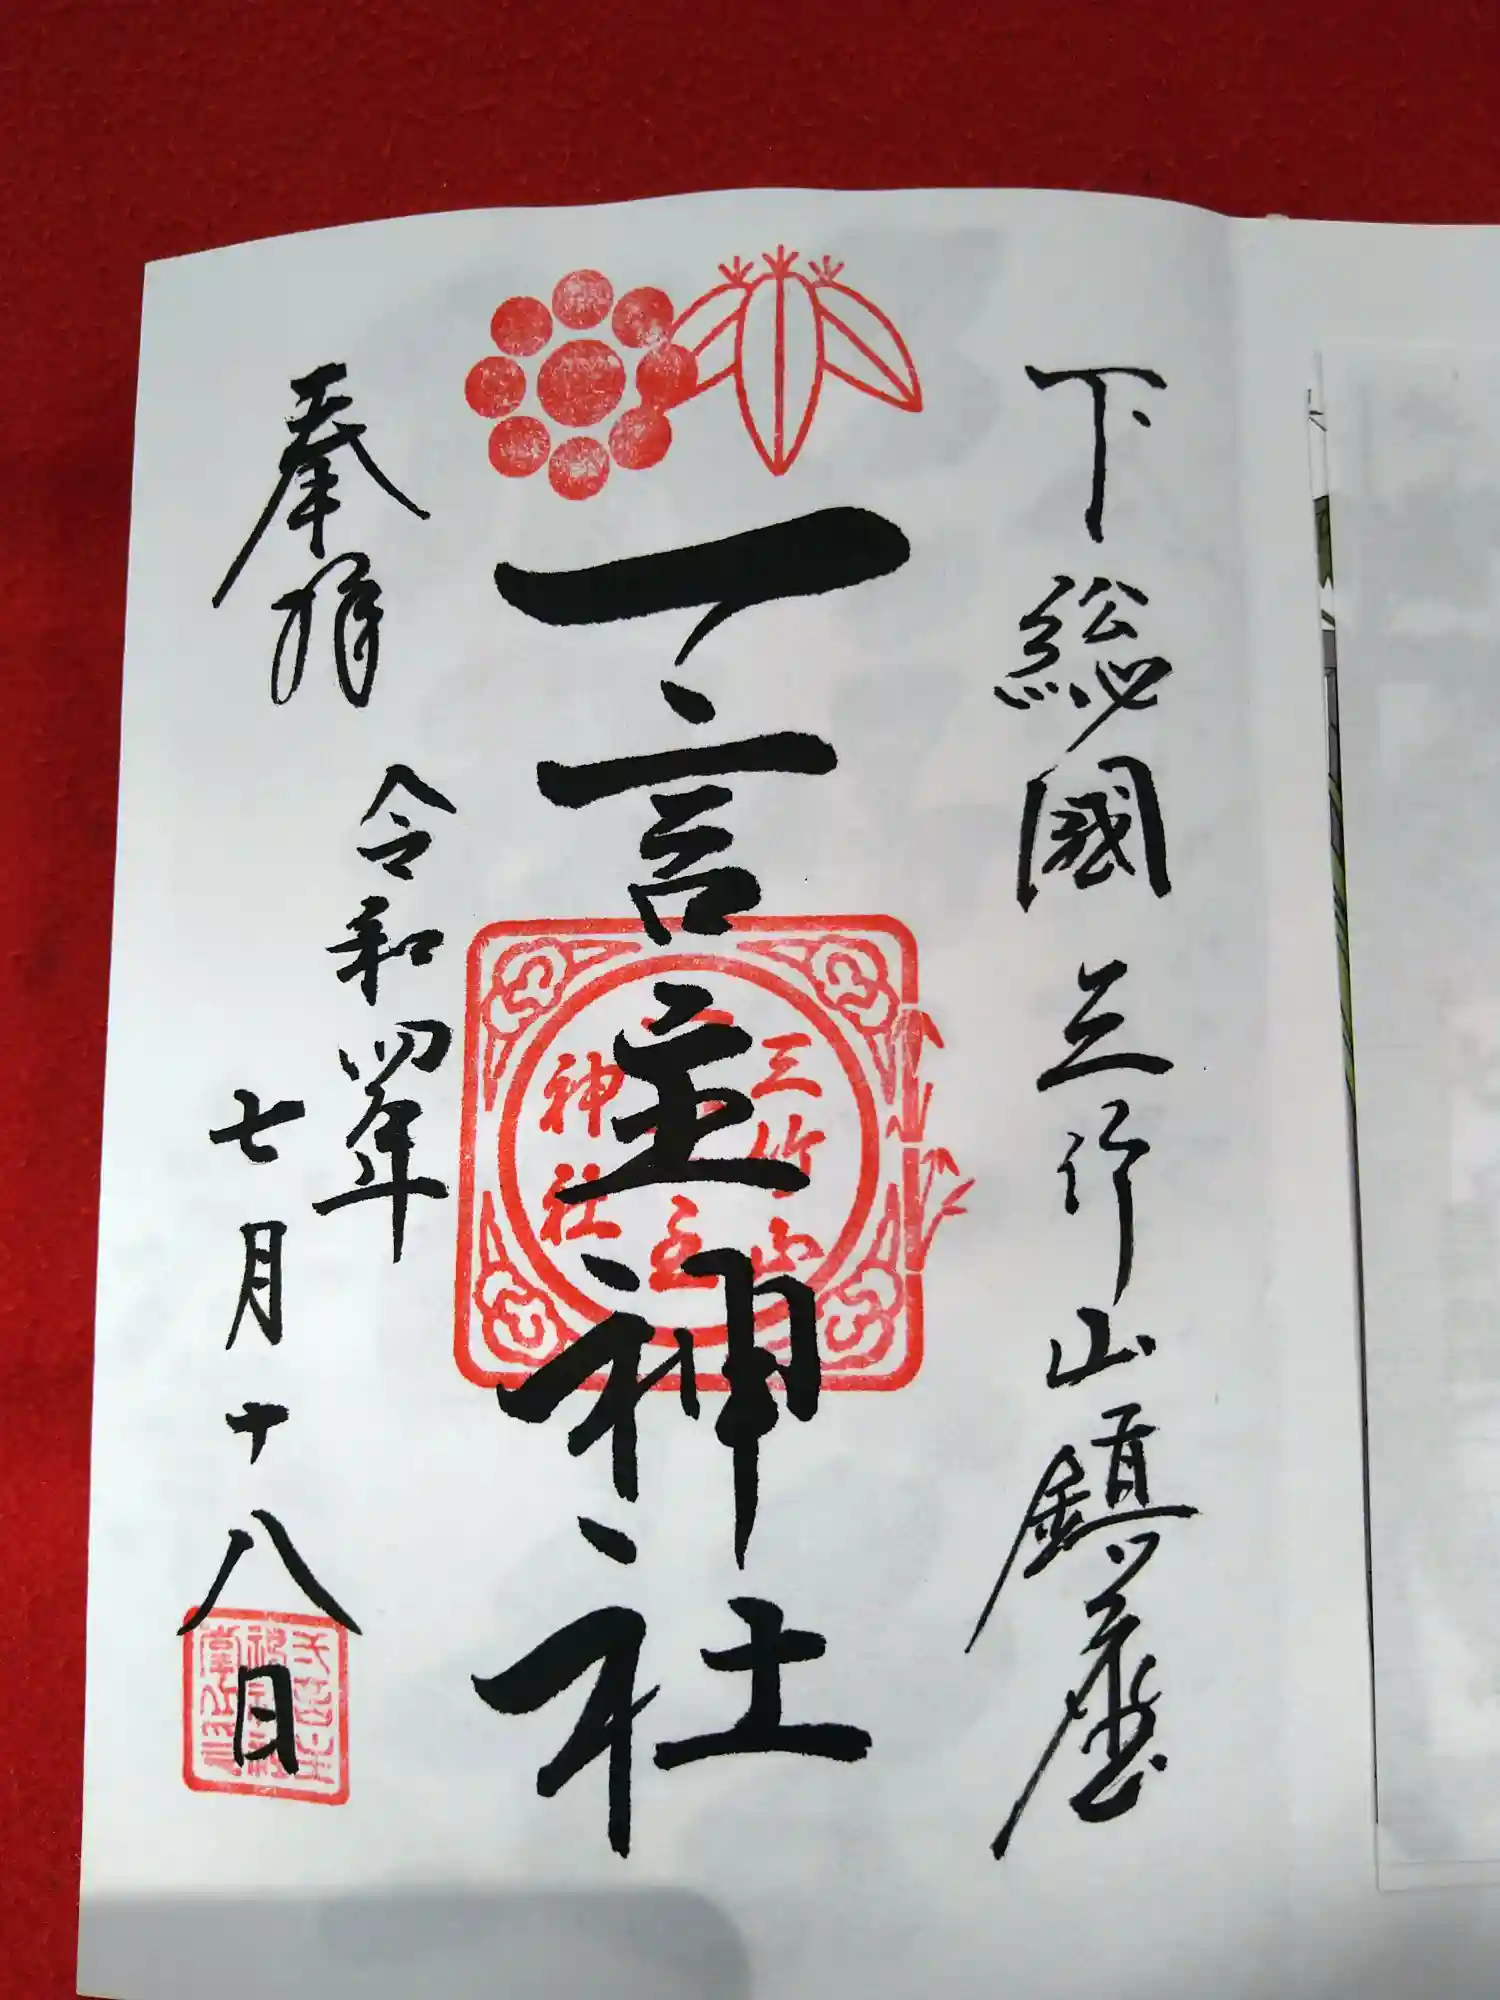 下総國三竹山鎮座
一言主神社
三竹山
一言主
神社
奉拝
令和四年
七月十八日